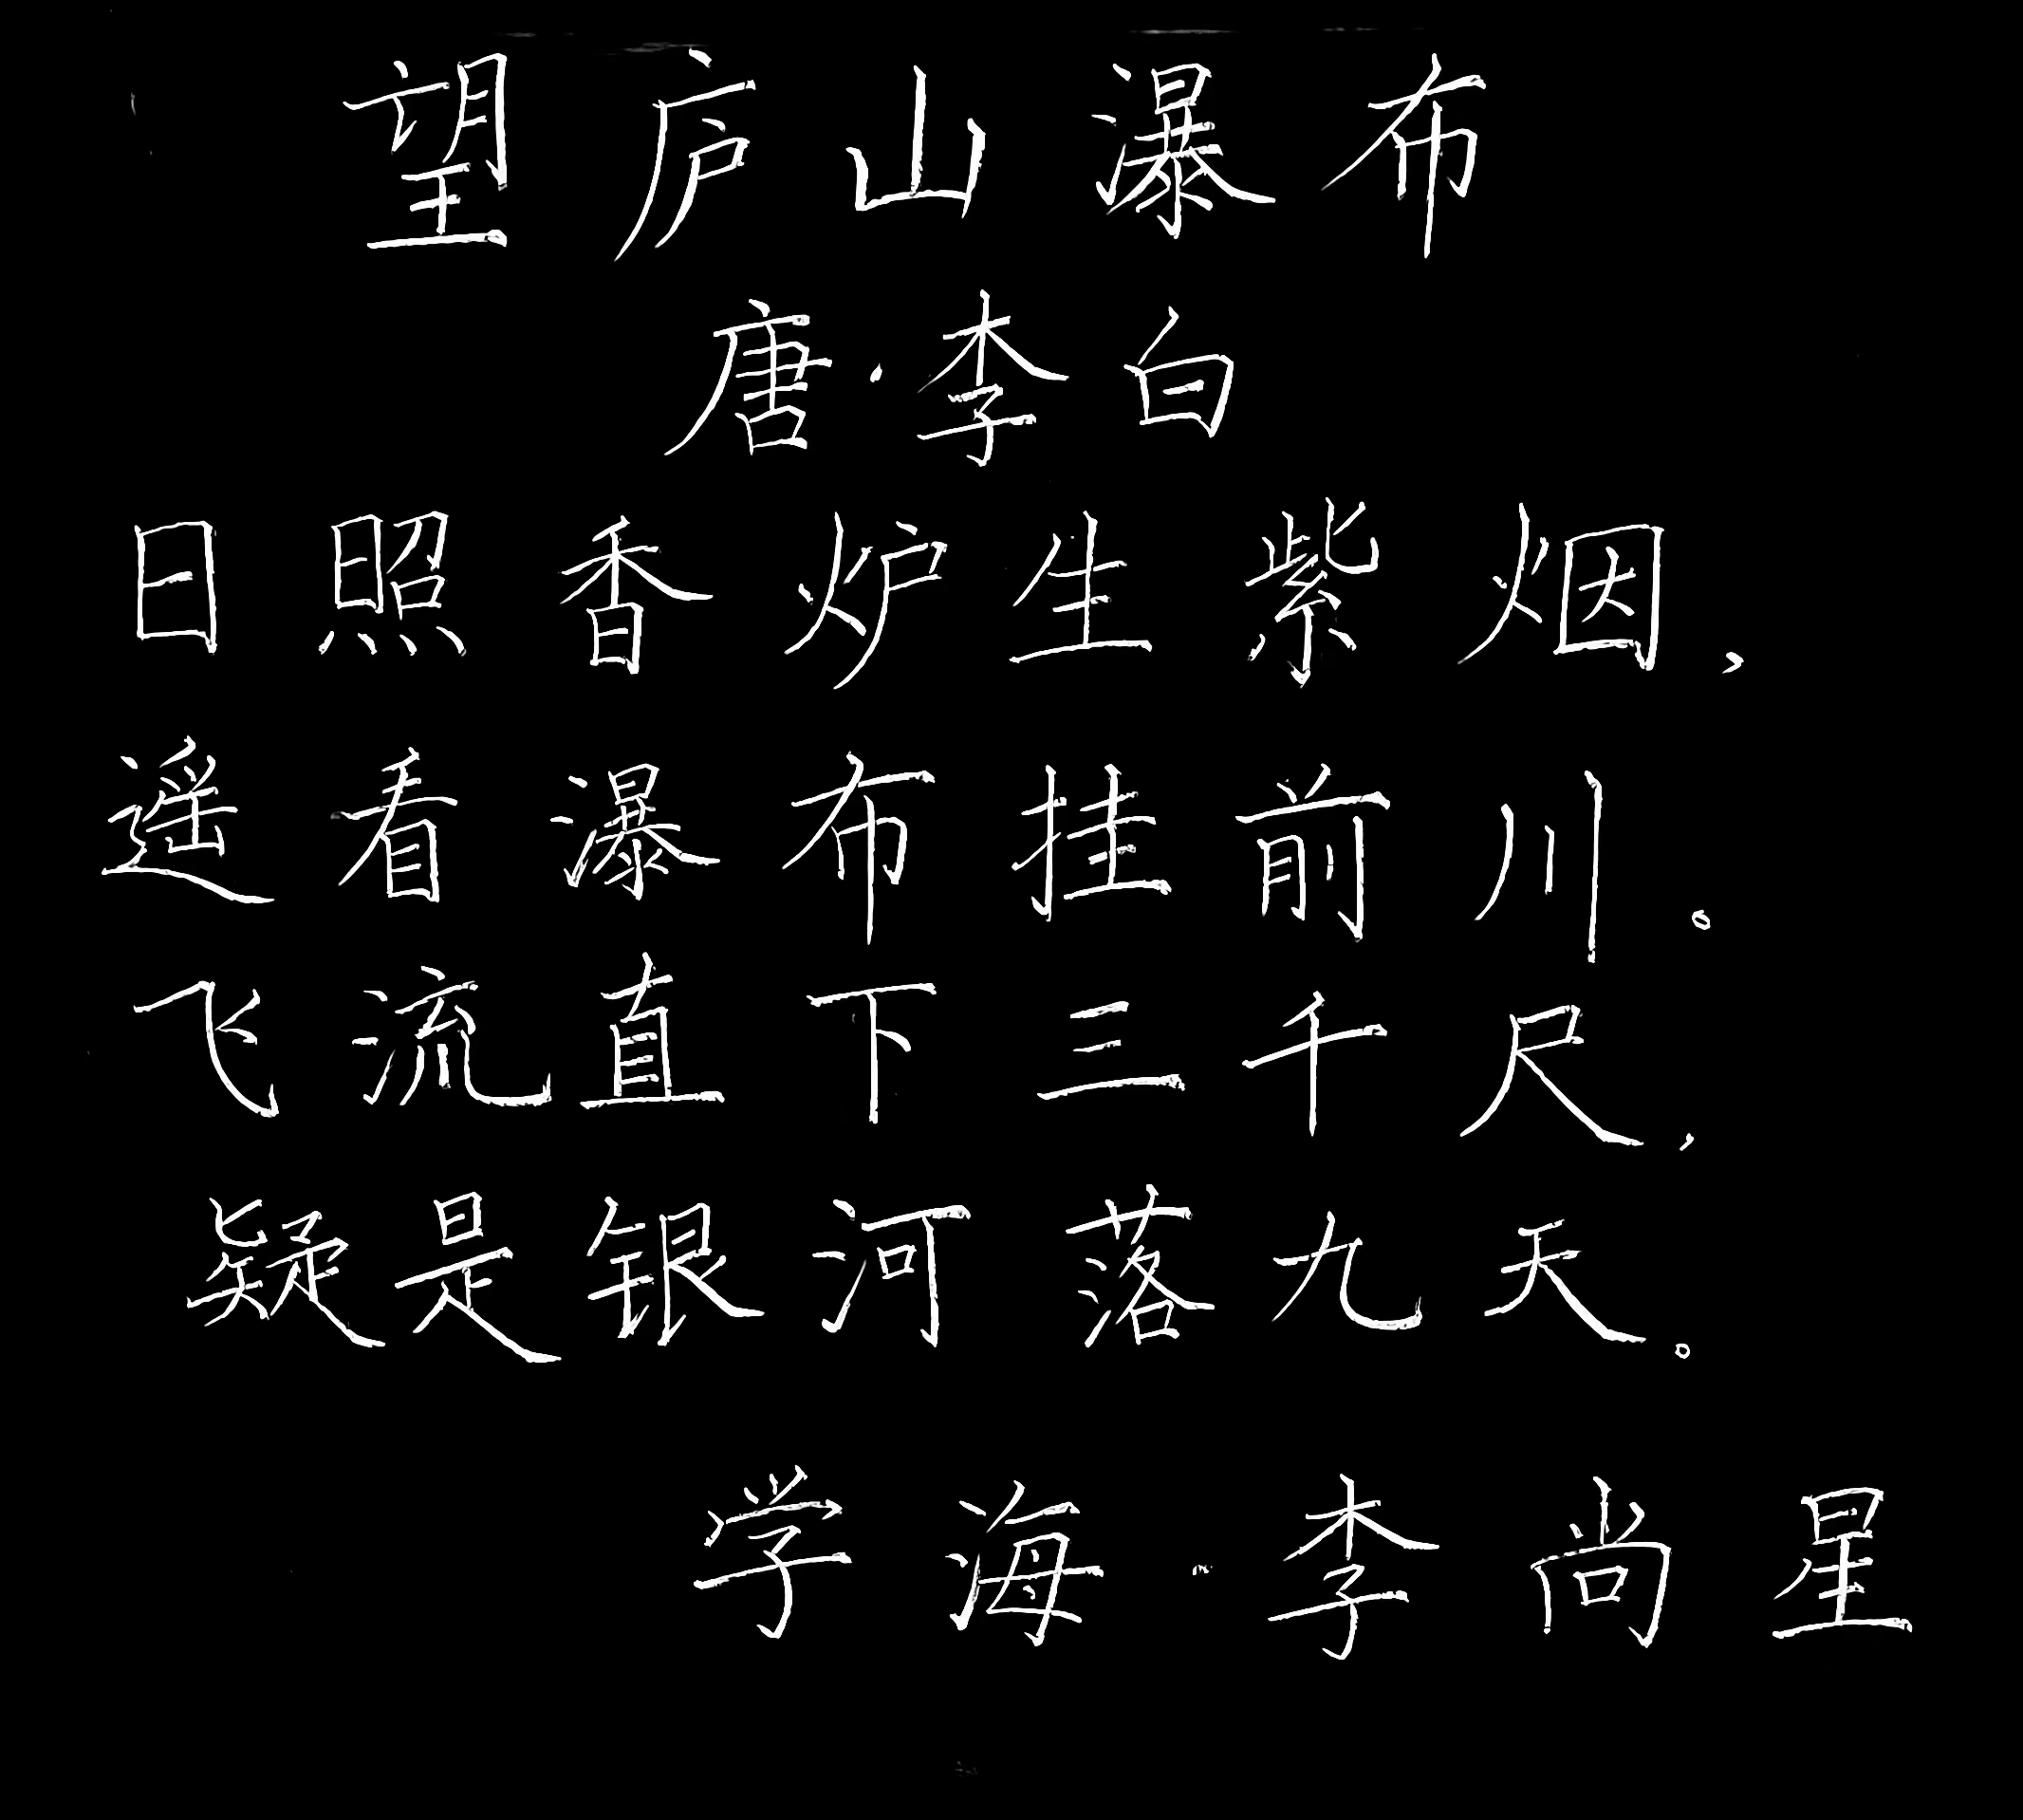 望庐山瀑布
唐·李白
日照香炉生紫烟，
遥看瀑布挂前川。
飞流直下三千尺，
疑是银河落九天。
学海·李尚星